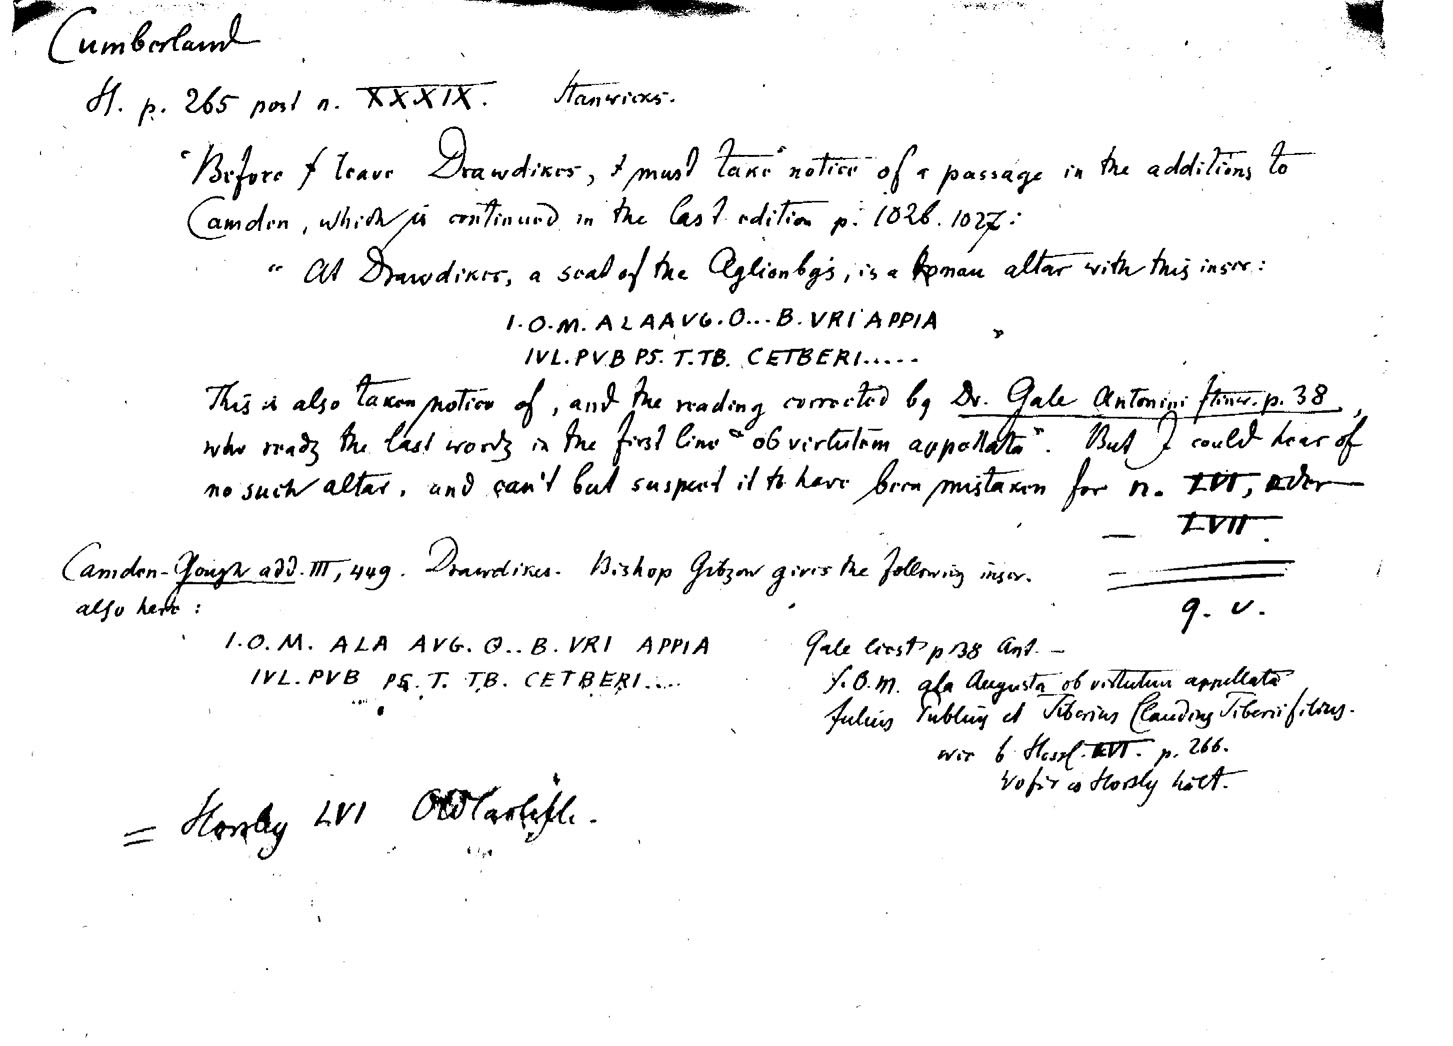 Cumberland
H. p. 265 post n. XXXIX. Stanwicks.
"Before I leave Drawdikes, I must take notice of a passage in the additions to
Camden, which is continued in the last edition p. 1026. 1027:
"At Drawdikes, a seat of the Aglionbys, is a Roman altar with this inscr:
I.O.M. ALAAVG.O...B.VRI APPIA
IVL.PVB PS.T.TB. CETBERI.....
"
This is also taken notice of, and the reading corrected by Dr. Gale Antonini Itiner. p. 38,
who reads the last words in the first line "ob virtutem appellata". But I could hear of
no such altar, and can't but suspect it to have been mistaken for n. LVI, oder
— LVII.
Camden-Gough add. III, 449. Drawdikes. Bishop Gibson gives the following inscr.
also here:
q. v.
I.O.M. ALA AVG. O.. B. VRI APPIA
IVL. PVB PS. T. TB. CETBERI....
Gale liest p 38 Ant. —
I.O.M. ala Augusta ob virtutem appellata
Julius Publius et Tiberius Claudius Tiberii filius.
wie b Horsl. LVI. p. 266.
wofür es Horsly hält.
= Horsley LVI Old Carlisle.